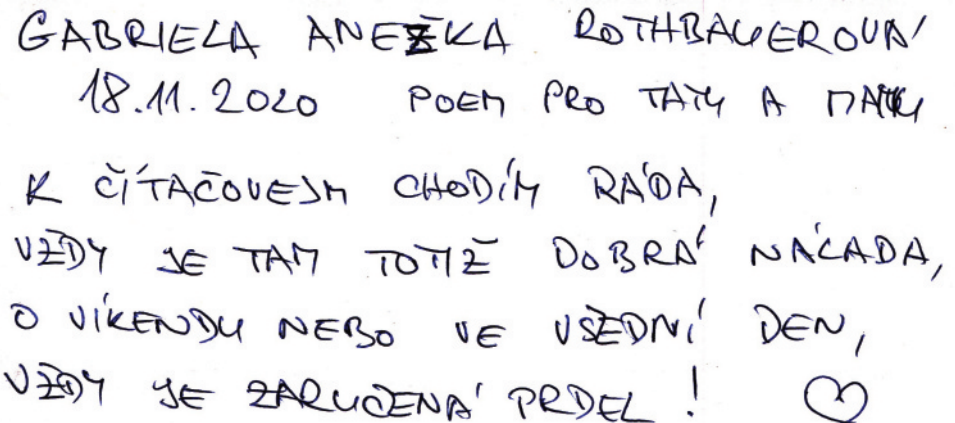 GABRIELA ANEŽKA ROTHBAUEROVÁ
18.11.2020 POEM PRO TATU A MATKU
K ČÍTAČOVEJM CHODÍM RÁDA,
VŽDY JE TAM TOTIŽ DOBRÁ NÁLADA,
O VÍKENDU NEBO VE VŠEDNÍ DEN,
VŽDY JE ZARUČENÁ PRDEL!